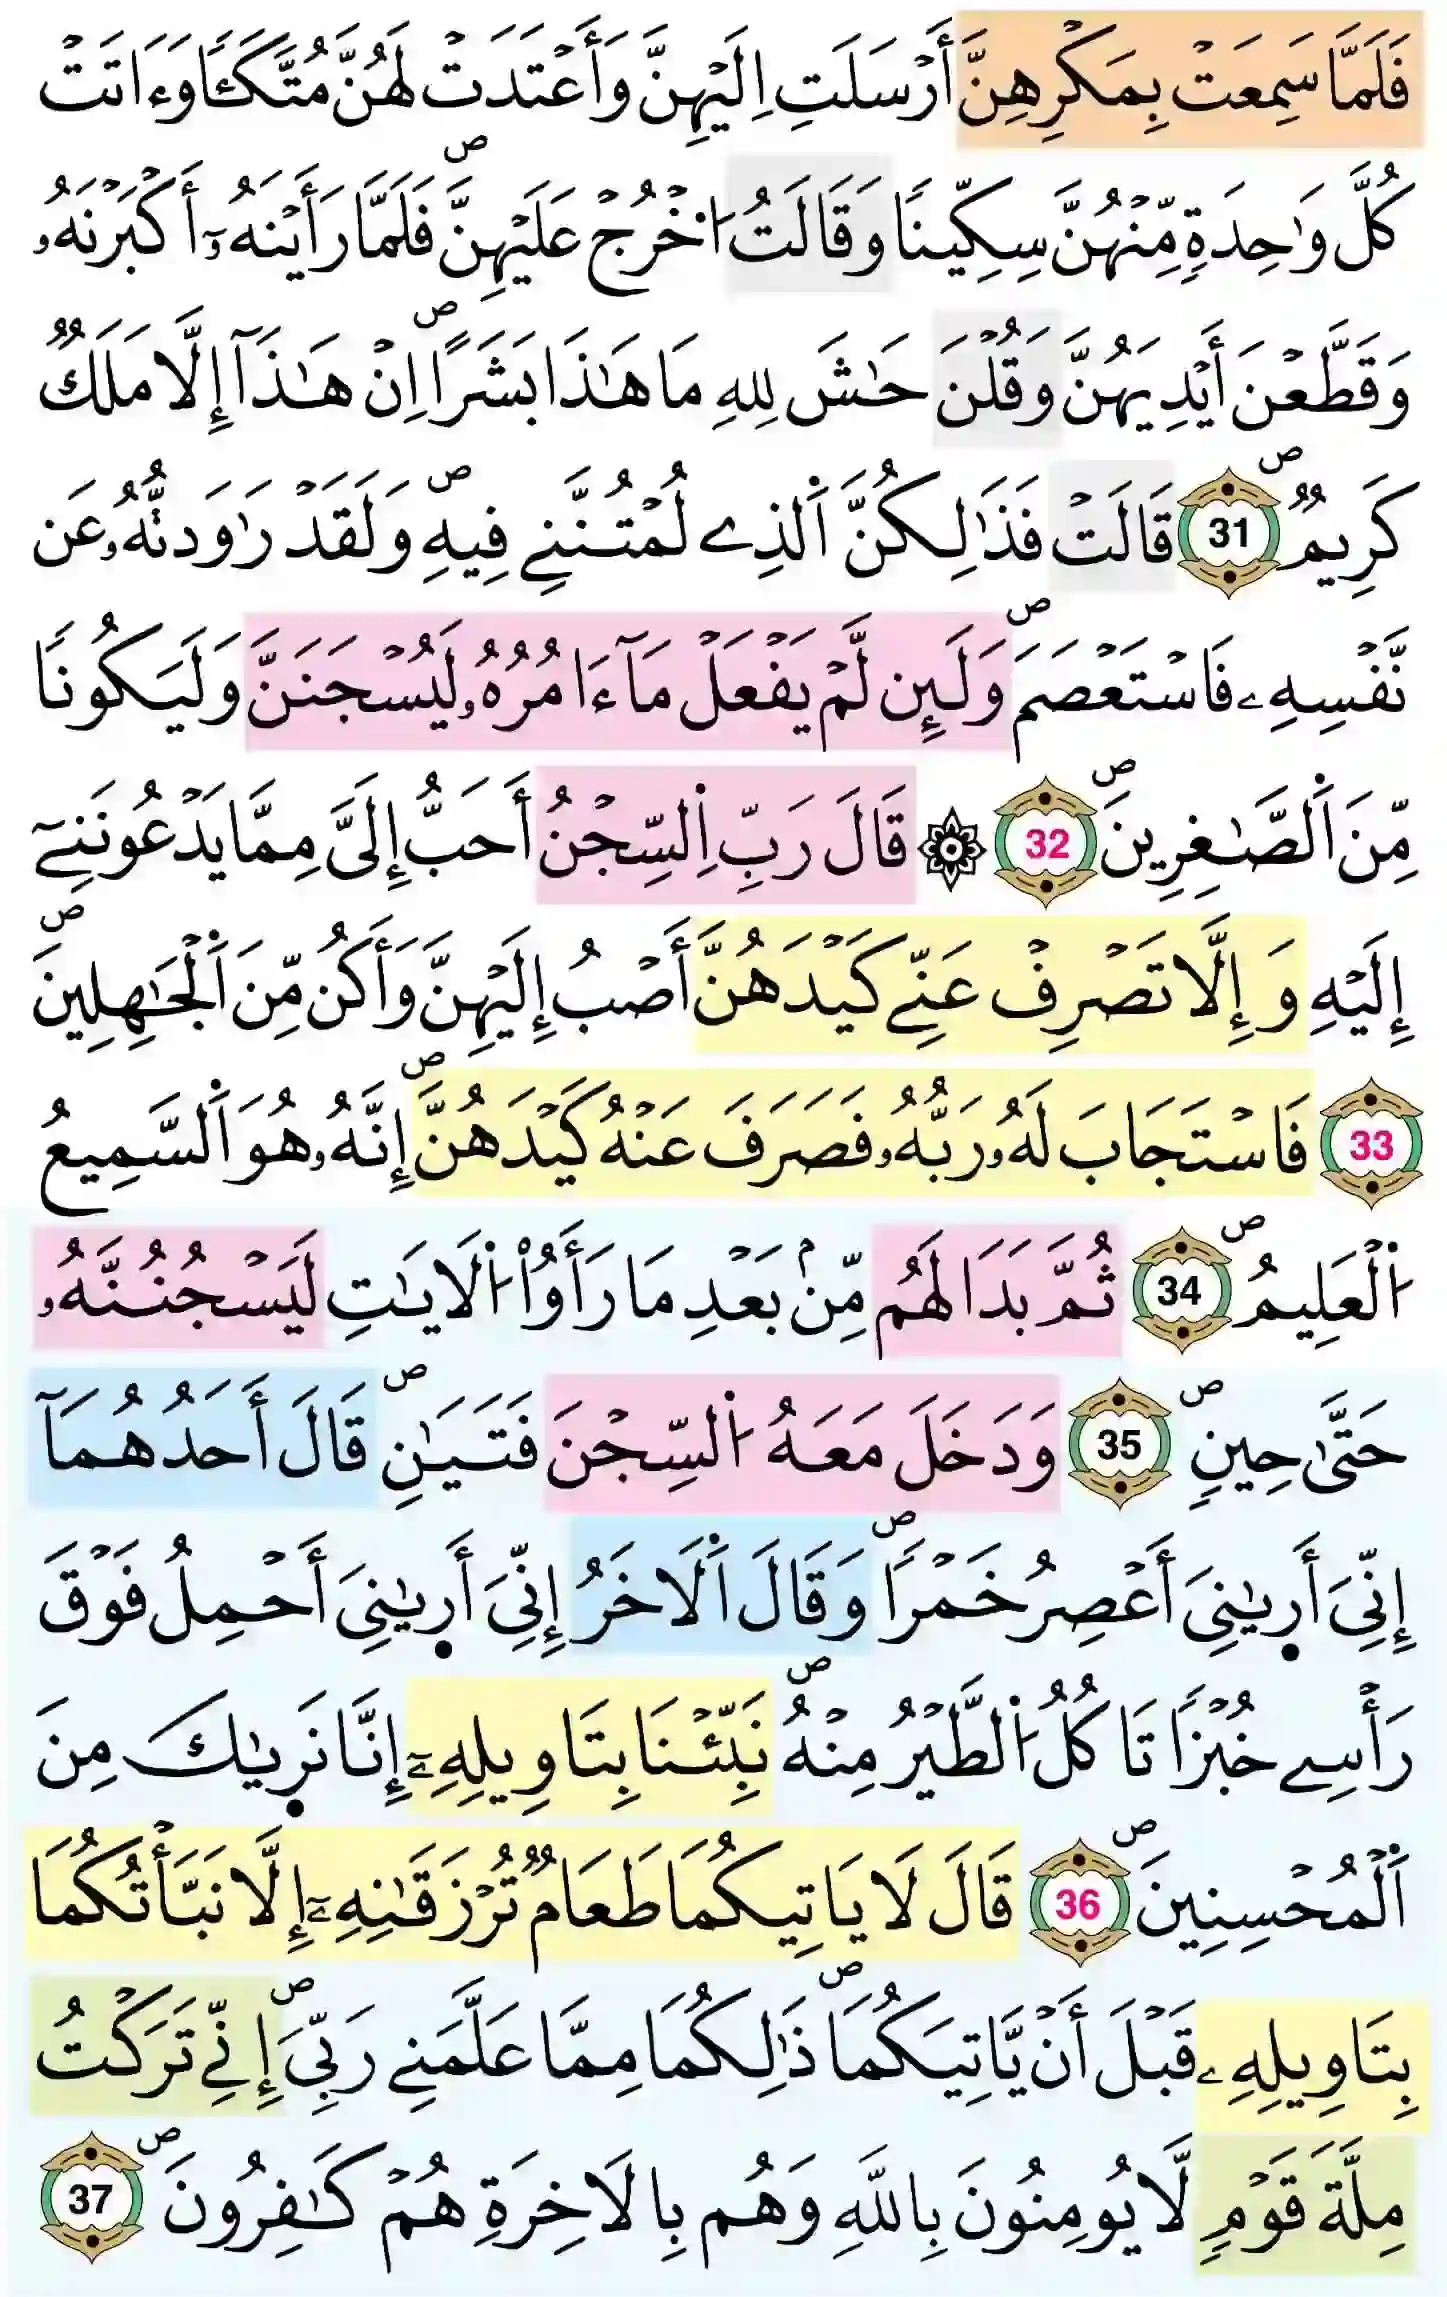 فَلَمَّا سَمِعَتْ بِمَكْرِهِنَّ أَرْسَلَتِ اِلَيْهِنَّ وَأَعْتَدَتْ لَهُنَّ مُتَّكَـٔاً وَءَاتَتْ
كُلَّ وَٰحِدَةٖ مِّنْهُنَّ سِكِّيناً وَقَالَتُ اُ۟خْرُجْ عَلَيْهِنَّۖ فَلَمَّا رَأَيْنَهُۥٓ أَكْبَرْنَهُۥ
وَقَطَّعْنَ أَيْدِيَهُنَّ وَقُلْنَ حَٰشَ لِلهِ مَا هَٰذَا بَشَراًۖ اِنْ هَٰذَآ إِلَّا مَلَكٞ
كَرِيمٞۖ 31 قَالَتْ فَذَٰلِكُنَّ اَ۬لذِے لُمْتُنَّنِے فِيهِۖ وَلَقَدْ رَٰوَدتُّهُۥ عَن
نَّفْسِهِۦ فَاسْتَعْصَمَۖ وَلَئِن لَّمْ يَفْعَلْ مَآ ءَامُرُهُۥ لَيُسْجَنَنَّ وَلَيَكُوناً
مِّنَ اَ۬لصَّٰغِرِينَۖ 32 ۞ قَالَ رَبِّ اِ۬لسِّجْنُ أَحَبُّ إِلَيَّ مِمَّا يَدْعُونَنِےٓ
إِلَيْهِ وَإِلَّا تَصْرِفْ عَنِّے كَيْدَهُنَّ أَصْبُ إِلَيْهِنَّ وَأَكُن مِّنَ اَ۬لْجَٰهِلِينَۖ
33 فَاسْتَجَابَ لَهُۥ رَبُّهُۥ فَصَرَفَ عَنْهُ كَيْدَهُنَّۖ إِنَّهُۥ هُوَ اَ۬لسَّمِيعُ
اُ۬لْعَلِيمُۖ 34 ثُمَّ بَدَا لَهُم مِّنۢ بَعْدِ مَا رَأَوُاْ اُ۬لَايَٰتِ لَيَسْجُنُنَّهُۥ
حَتَّىٰ حِينٖۖ 35 وَدَخَلَ مَعَهُ اُ۬لسِّجْنَ فَتَيَٰنِۖ قَالَ أَحَدُهُمَآ
إِنِّيَ أَر۪يٰنِيَ أَعْصِرُ خَمْراًۖ وَقَالَ اَ۬لَاخَرُ إِنِّيَ أَر۪يٰنِيَ أَحْمِلُ فَوْقَ
رَأْسِے خُبْزاً تَاكُلُ اُ۬لطَّيْرُ مِنْهُۖ نَبِّئْنَا بِتَاوِيلِهِۦٓ إِنَّا نَر۪يٰكَ مِنَ
اَ۬لْمُحْسِنِينَۖ 36 قَالَ لَا يَاتِيكُمَا طَعَامٞ تُرْزَقَٰنِهِۦٓ إِلَّا نَبَّأْتُكُمَا
بِتَاوِيلِهِۦ قَبْلَ أَنْ يَّاتِيَكُمَاۖ ذَٰلِكُمَا مِمَّا عَلَّمَنِے رَبِّيَۖ إِنِّے تَرَكْتُ
مِلَّةَ قَوْمٖ لَّا يُومِنُونَ بِاللَّهِ وَهُم بِالَاخِرَةِ هُمْ كَٰفِرُونَۖ 37